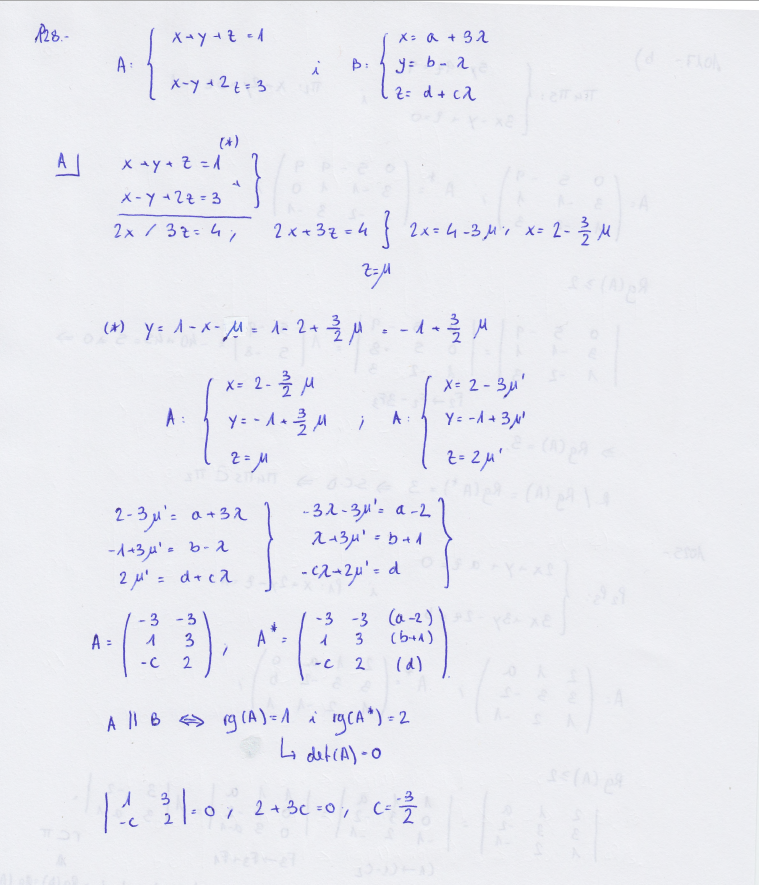 P28.-
A: { x+y+z=1
x-y+2z=3
i B: { x= a + 3λ
y= b - λ
z= d+cλ
A] x+y+z=1 (*)
x-y+2z=3 +
2x / 3z=4; 2x+3z=4 } 2x=4-3μ; x=2-3/2 μ
z=μ
(*) y=1-x-μ=1-2+3/2 μ=-1+3/2 μ
A: { x=2-3/2 μ
y=-1+3/2 μ
z=μ
; A: { x=2-3μ'
y=-1+3μ'
z=2μ'
2-3μ'=a+3λ } -3λ-3μ'=a-2
-1+3μ'=b-λ } λ+3μ'=b+1
2μ'=d+cλ } -cλ+2μ'=d
A= ( -3 -3
1 3
-c 2 )
, A*= ( -3 -3 (a-2)
1 3 (b+1)
-c 2 (d) )
A || B ⇔ rg(A)=1 i rg(A*)=2
↳ det(A)=0
| 1 3
-c 2 | =0, 2+3c=0, c=-3/2